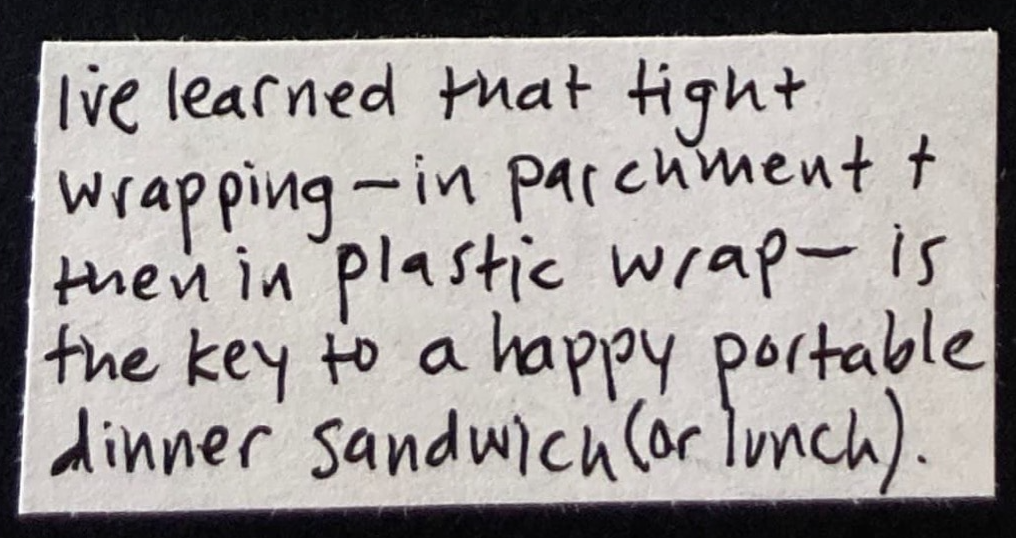 I've learned that tight
wrapping – in parchment +
then in plastic wrap – is
the key to a happy portable
dinner sandwich (or lunch).